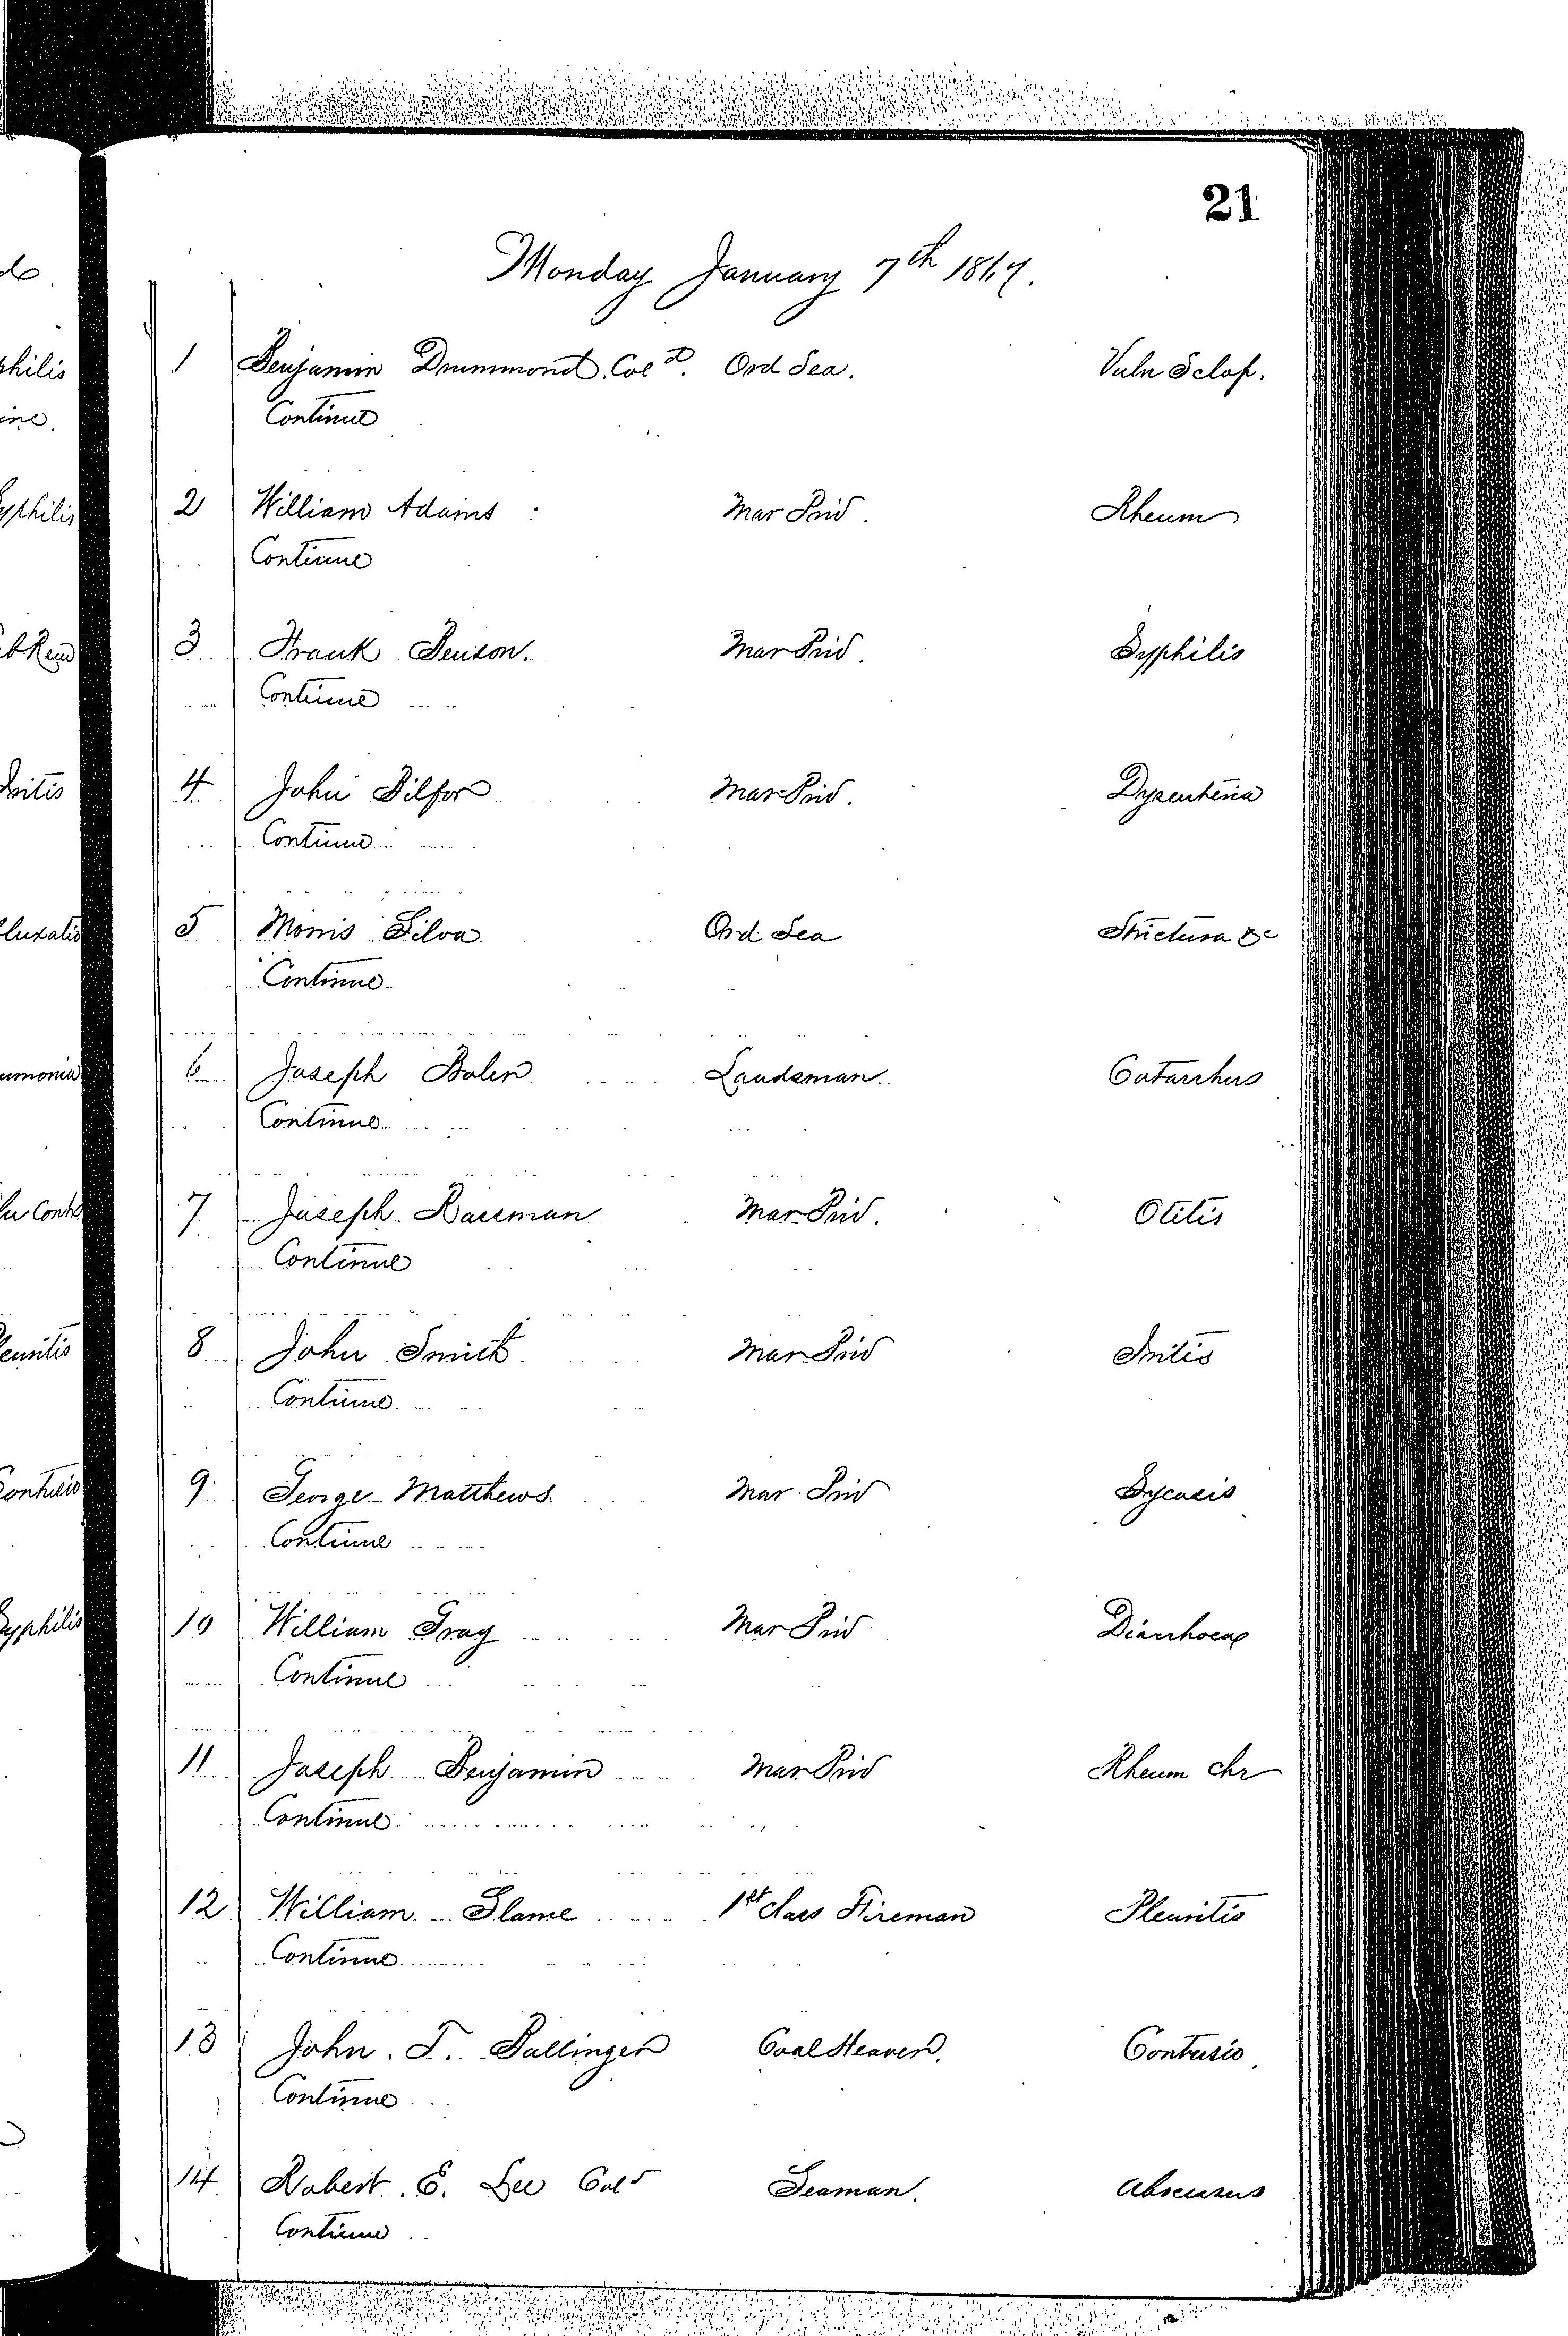 21
Monday January 7th 1867.
1 Benjamin Drummond. Cold. Ord Sea. Vuln Sclop.
Continue
2 William Adams : Mar Priv. Rheum
Continue
3 Frank Benson. Mar Priv. Syphilis
Continue
4 John Bilfor Mar Priv. Dysenteria
Continue
5 Morris Silva Ord Sea Strictura &c
Continue
6 Joseph Bolen Landsman Catarrhus
Continue
7 Joseph Bassman Mar Priv. Otitis
Continue
8 John Smith Mar Priv Iritis
Continue
9 George Matthews. Mar. Priv Sycosis
Continue
10 William Gray Mar Priv Diarrhoea
Continue
11 Joseph Benjamin Mar Priv Rheum Chr
Continue
12 William Slame 1st Class Fireman Pleuritis
Continue
13 John. T. Ballinger Coal Heaver. Contusio.
Continue
14 Robert. E. Lee Cold Seaman. Abscessus
Continue
philis
ine.
Syphilis
Iritis
luxatio
umonia
leuritis
Contusio
Syphilis